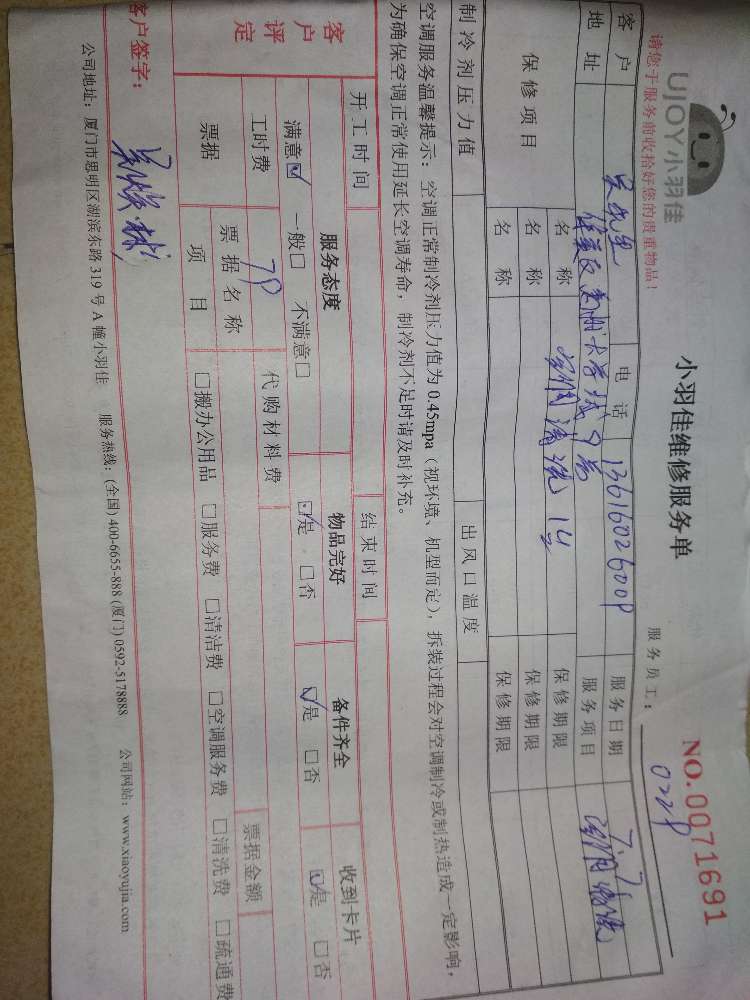 UJOY小羽佳
小羽佳维修服务单
NO.0071691
请您于服务前收拾好您的贵重物品!
服务员工:
客户 电话 服务日期 7.7
地址 服务项目
保修项目 名称 空调清洗1台 保修期限
名称 保修期限
名称 保修期限
制冷剂压力值 出风口温度
空调服务温馨提示:空调正常制冷剂压力值为 0.45mpa(视环境、机型而定),拆装过程会对空调制冷或制热造成一定影响,
为确保空调正常使用延长空调寿命,制冷剂不足时请及时补充。
开工时间 结束时间
客户评定 服务态度 物品完好 备件齐全 收到卡片
满意☑ 一般□ 不满意□ ☑是 □否 ☑是 □否 ☑是 □否
工时费 代购材料费
票据 票据名称 票据金额
项目 □搬办公用品 □服务费 □清洁费 □空调服务费 □清洗费 □疏通费
客户签字:
公司地址:厦门市思明区湖滨东路 319 号 A 幢小羽佳 服务热线:(全国) 400-6655-888 (厦门) 0592-5178888 公司网站:www.xiaoyujia.com